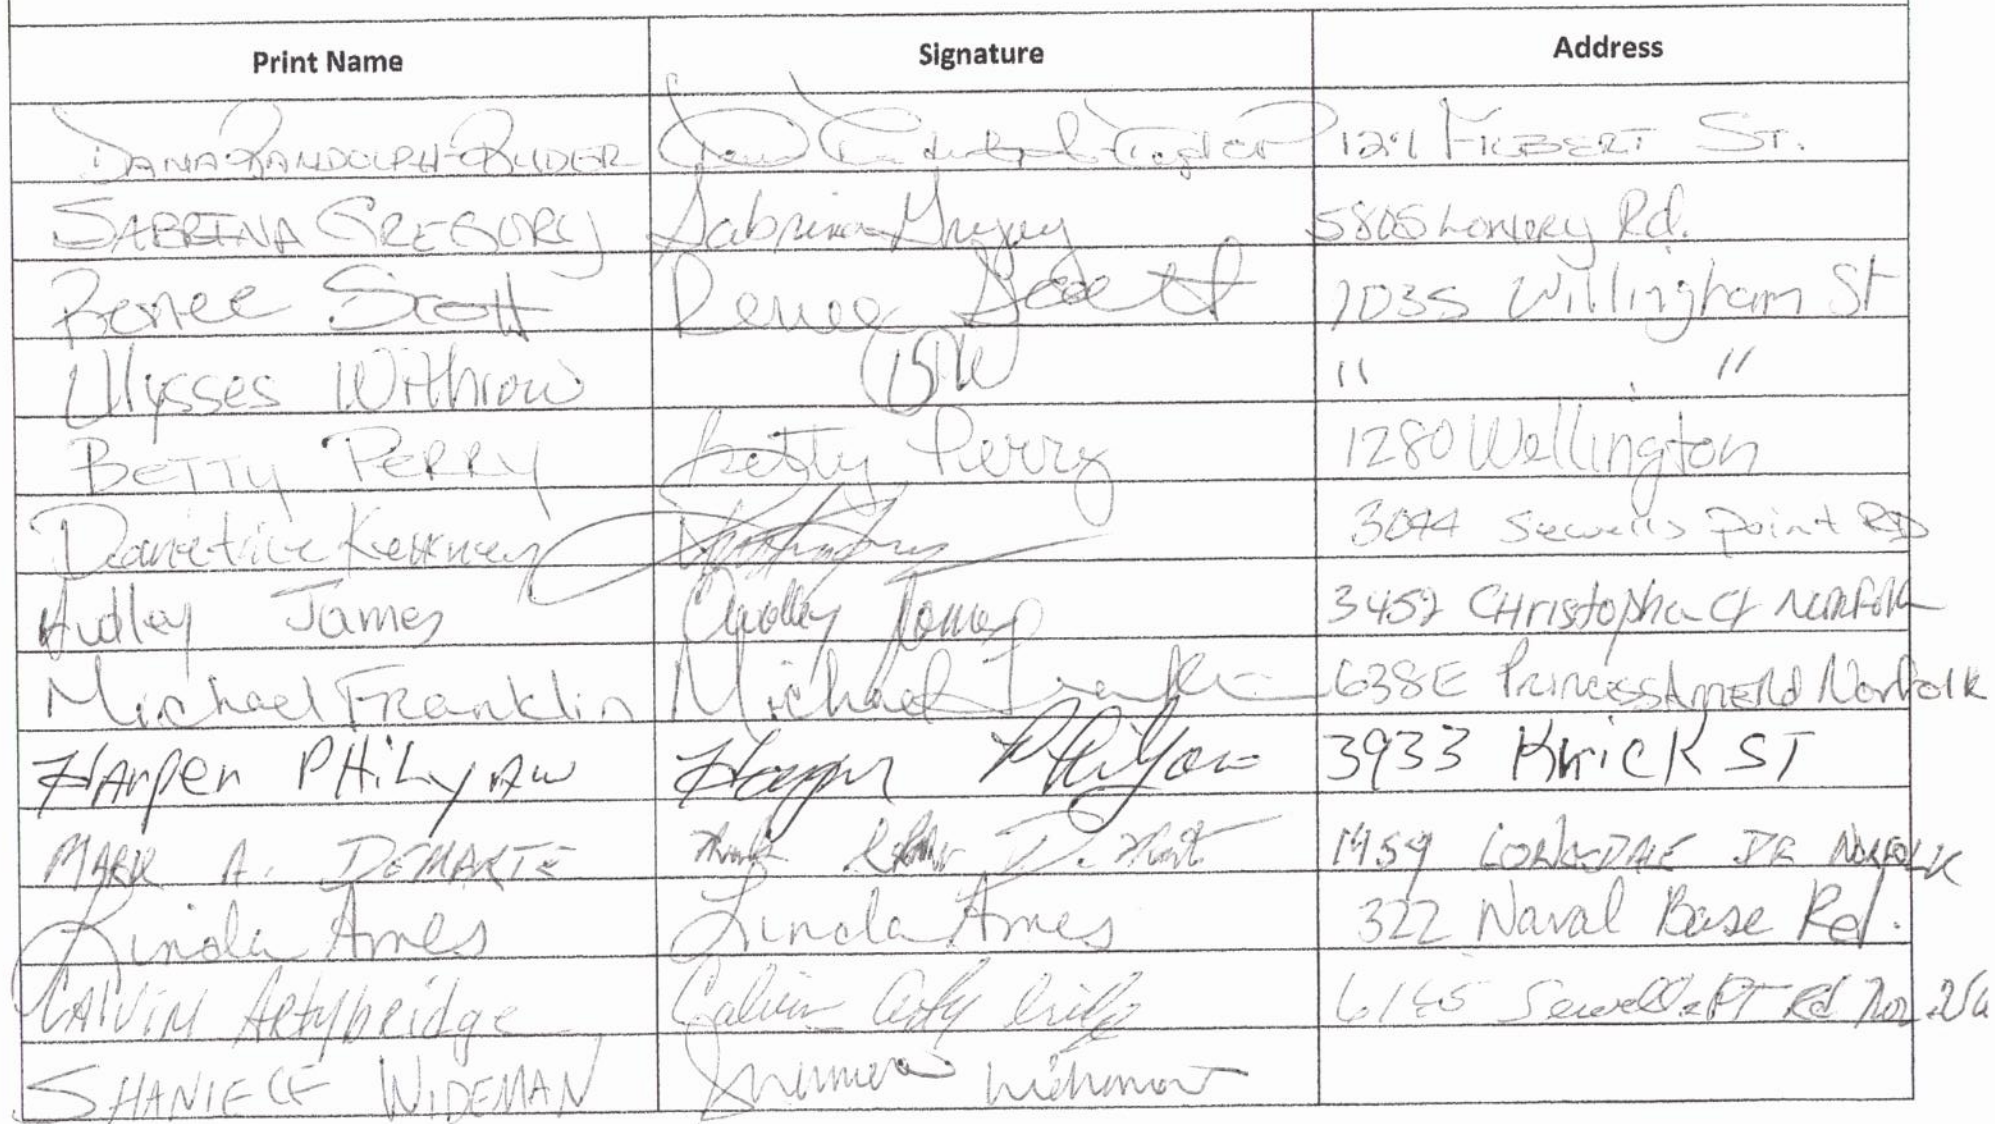 Print Name Signature Address
DANA RANDOLPH- Dana 1291 FILBERT ST.
SABRINA GREGORY Sabrina Gregory 5805 Lowery Rd.
Renee Scott Renee Scott 7035 Willingham St
Ulysses Withrow " "
BETTY PERRY Betty Perry 1280 Wellington
Kearney 3044 Sewells Point RD
Audley James Audley James Christopher Ct Norfolk
Michael Franklin Michael Franklin 638 E Princess Anne Rd Norfolk
HARPER PHILYAW Harper Philyaw 3933 Krick ST
MARK A. DEMARTE Mark 1459 DR NORFOLK
Linda Ames Linda Ames 322 Naval Base Rd.
CALVIN Artybridge Calvin Artybridge Sewells PT Rd Nor. Va
SHANIECE WIDEMAN Wideman